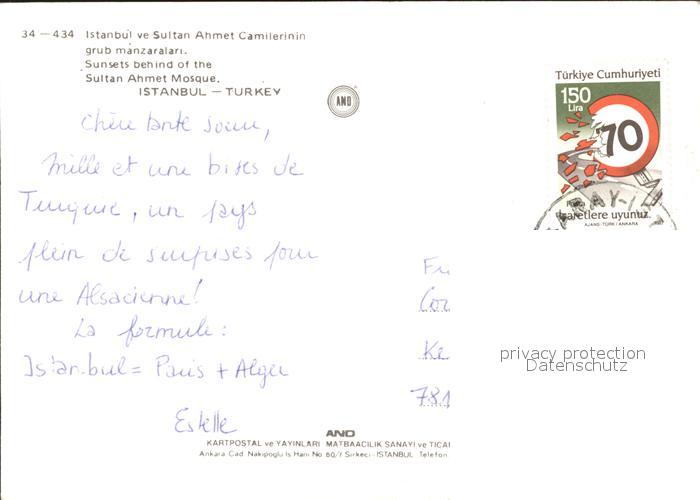 34 — 434 Istanbul ve Sultan Ahmet Camilerinin
grub manzaraları.
Sunsets behind of the
Sultan Ahmet Mosque.
ISTANBUL — TURKEY
AND
Türkiye Cumhuriyeti
150
Lira
70
işaretlere uyunuz.
AJANS-TÜRK / ANKARA
Chère tante soeur,
Mille et une bises de
Turquie, un pays
plein de surprises pour
une Alsacienne!
La formule:
Istanbul = Paris + Alger
Estelle
Fr
Cor
Ke
781
privacy protection
Datenschutz
AND
KARTPOSTAL ve YAYINLARI MATBAACILIK SANAYİ ve TİCA
Ankara Cad. Nakipoğlu İş Hanı No 60/7 Sirkeci - İSTANBUL Telefon